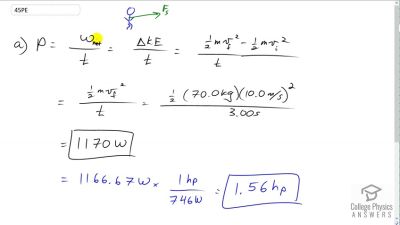 45PE
F_s
a) P = W_net / t = ΔKE / t = (½ m v_f² - ½ m v_i²) / t
= ½ m v_f² / t = ½ (70.0 kg)(10.0 m/s)² / 3.00s
= 1170 W
= 1166.67 W × 1 hp / 746 W = 1.56 hp
College Physics
ANSWERS